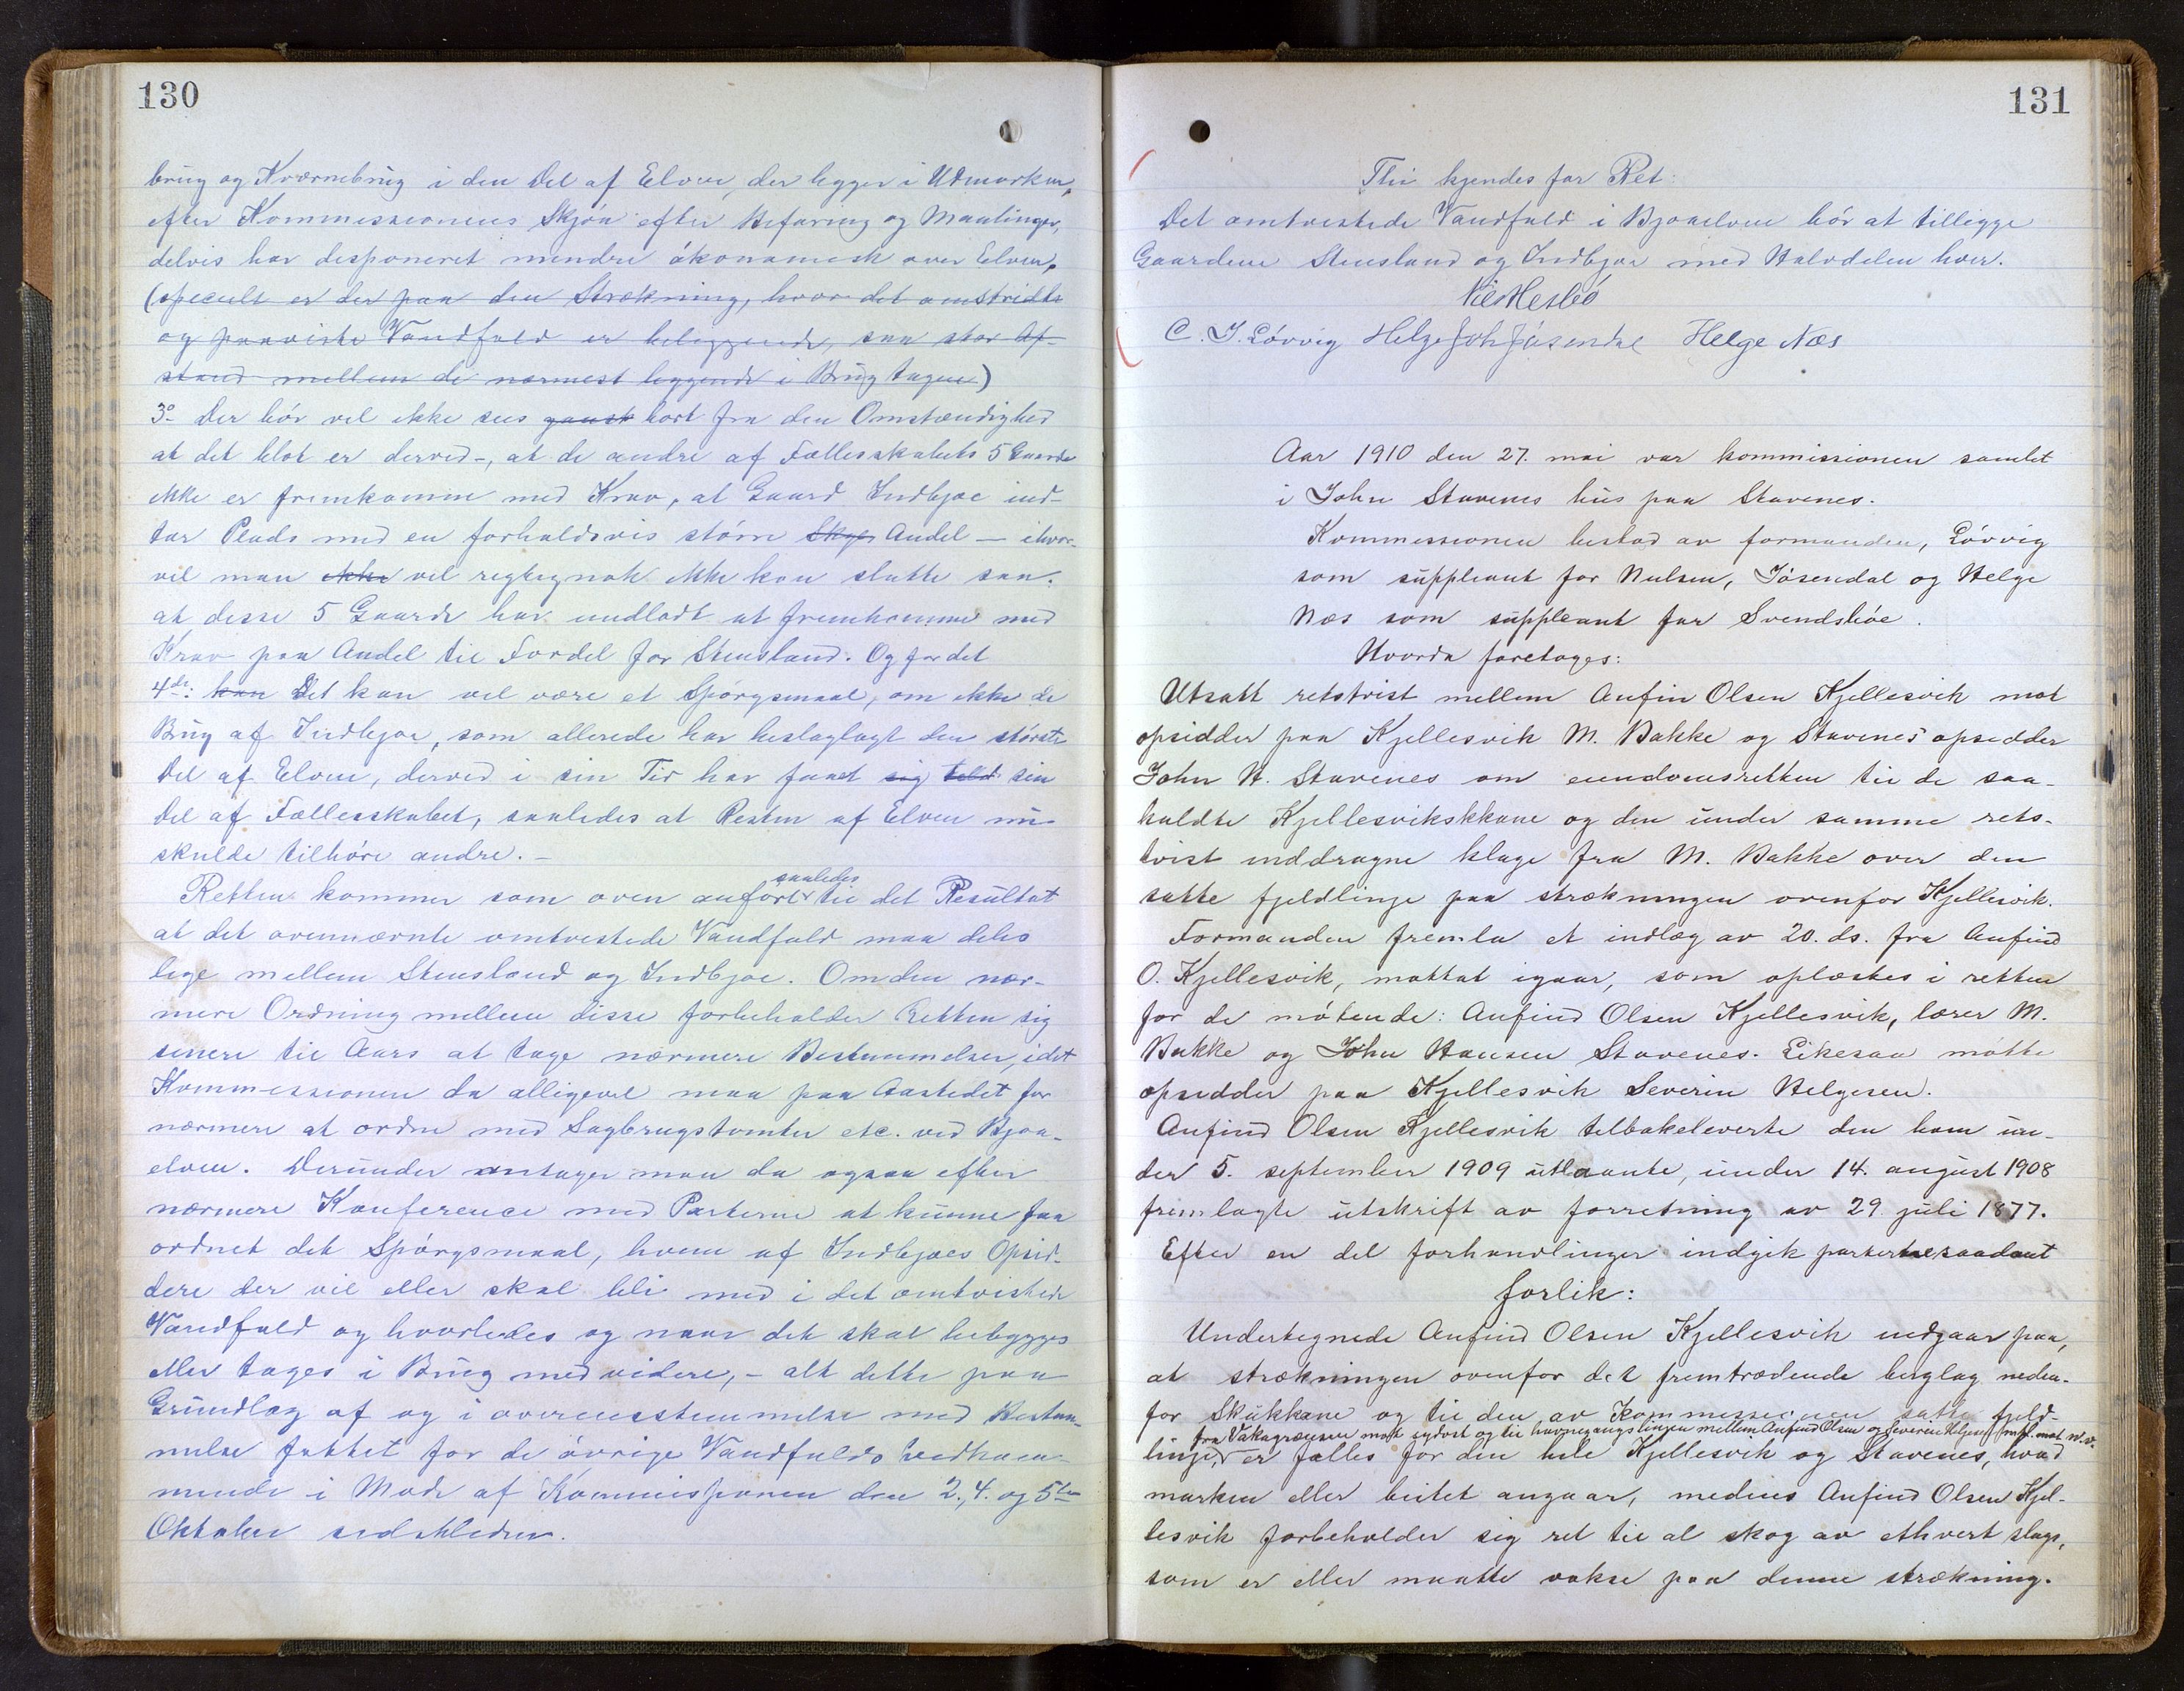 130
brug og Kværnebrug i den Del af Elven, der ligger i Udmarken,
efter Kommissionens Skjøn efter Befaring og Maalinger,
delvis har disponeret mindre økonomisk over Elven,
(specielt er der paa den Strækning, hvor det omstridte
og paaviste Vandfald er beliggende, saa stor Af-
stand mellem de nærmest liggende i Brug tagne)
3º Der bør vel ikke sees ganske bort fra den Omstændighed
at det blot er derved -, at de andre af Fællesskabets 5 Gaarde
ikke er fremkommen med Krav, at Gaard Indbjoe ind-
tar Plads med en forholdsvis større Skyl Andel — ihvor-
vel man ikke vel rigtignok ikke kan slutte saa.
at disse 5 Gaarde har undladt at fremkomme med
Krav paa Andel til Fordel for Stensland. Og for det
4de: kan Det kan vel være et Spørgsmaal, om ikke de
Brug af Indbjoe, som allerede har beslaglagt den største
Del af Elven, derved i sin Tid har faaet sig tild sin
Del af Fællesskabet, saaledes at Resten af Elven nu
skulde tilhøre andre. -
Retten kommer som oven anført saaledes til det Resultat
at det ovennævnte omtvistede Vandfald maa deles
lige mellem Stensland og Indbjoe. Om den nær-
mere Ordning mellem disse forbeholder Retten sig
senere til Aars at tage nærmere Bestemmelser, idet
Kommissionen da alligevel maa paa Aastedet for
nærmere at ordne med Sagbrugstomter etc. ved Bjoa-
elven. Derunder antager man da ogsaa efter
nærmere Konference med Parterne at kunne faa
ordnet det Spørgsmaal, hvem af Indbjoes Opsid-
dere der vil eller skal bli med i det omtvistede
Vandfald og hvorledes og naar det skal bebygges
eller tages i Brug med videre, - alt dette paa
Grundlag af og i overensstemmelse med Bestem-
melse fattet for de øvrige Vandfalds Vedkom-
mende i Møde af Kommissionen den 2., 4. og 5te
Oktober sidstleden.
131
Thi kjendes for Ret:
Det omtvistede Vandfald i Bjoaelven bør at tilligge
Gaardene Stensland og Indbjoe med Halvdelen hver.
C. J. Løvvig Helge Joh Jøsendal Helge Næs
Aar 1910 den 27. mai var kommissionen samlet
i John Stavenes hus paa Stavenes.
Kommissionen bestod av formanden, Løvvig
som suppleant for Nielsen, Jøsendal og Helge
Næs som suppleant for Svendsbøe.
Hvorda foretoges:
Utsatt retstvist mellem Anfin Olsen Kjellesvik mot
opsidder paa Kjellesvik M. Bakke og Stavenes opsidder
John H. Stavenes om eiendomsretten til de saa-
kaldte Kjellesvikskkane og den under samme rets-
tvist inddragne klage fra M. Bakke over den
satte fjeldlinje paa strækningen ovenfor Kjellesvik.
Formanden fremla et indlæg av 20. ds. fra Anfind
O. Kjellesvik, mottat igaar, som oplæstes i retten
for de møtende: Anfind Olsen Kjellesvik, lærer M.
Bakke og John Hansen Stavenes. Likesaa møtte
opsidder paa Kjellesvik Severin Helgesen.
Anfind Olsen Kjellesvik tilbakeleverte den ham un-
der 5. september 1909 utlaante, under 14. august 1908
fremlagte utskrift av forretning av 29. juli 1877.
Efter en del forhandlinger indgik parterne saadant
forlik:
Undertegnede Anfind Olsen Kjellesvik indgaar paa,
at strækningen ovenfor det fremtrædende berglag neden-
for Skukkane og til den av Kommissionen satte fjeld-
fra Vakagrænsen mot sydost og til havnegangslinjen mellem Anfind Olsen og Severin Helgesen mot n.v.
linje, er fælles for den hele Kjellesvik og Stavenes, hvad
marken eller beitet angaar, medens Anfind Olsen Kjel-
lesvik forbeholder sig ret til al skog av ethvert slags,
som er eller maatte vokse paa denne strækning.